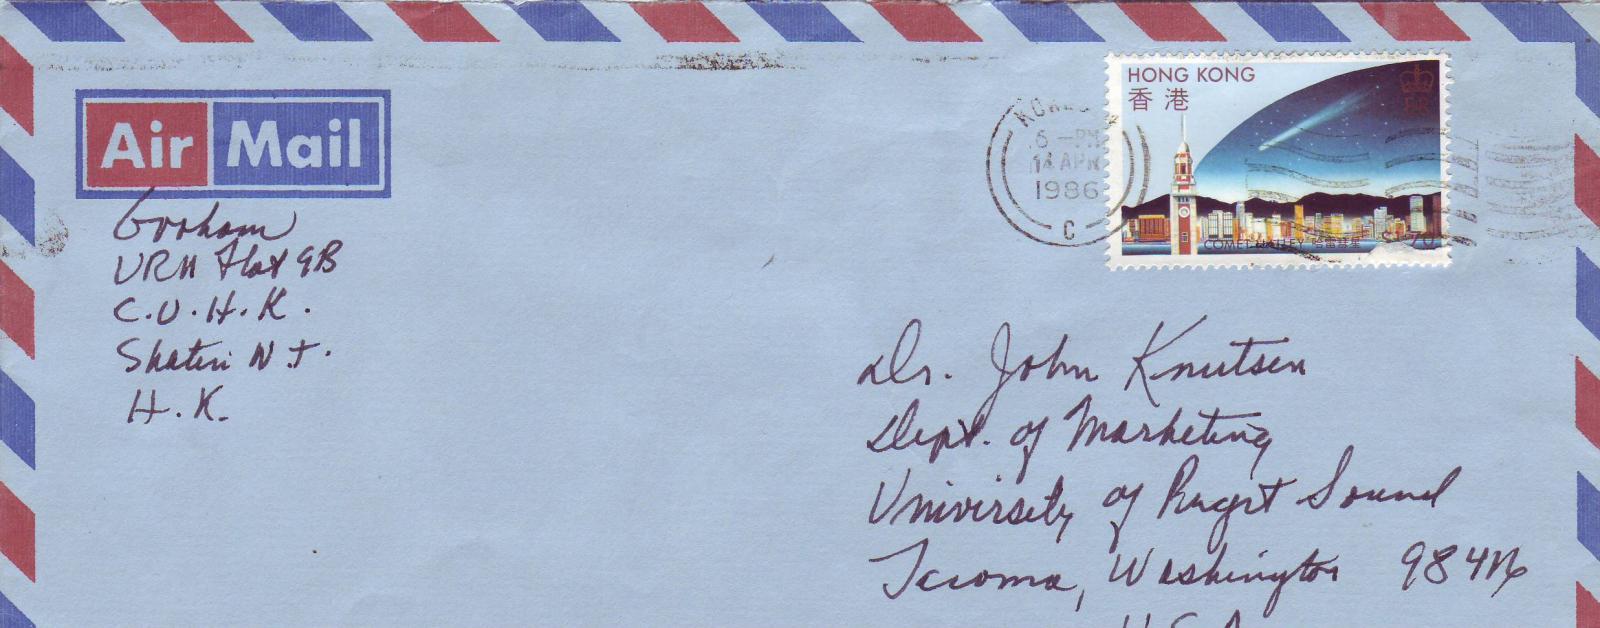 Air Mail
Graham
URH Flat 9B
C.U.H.K.
Shatin N.T.
H.K.
HONG KONG
香港
6 -PM
14 APR
1986
C
COMET HALLEY 哈雷彗星
Dr. John Knutsen
Dept. of Marketing
University of Puget Sound
Tacoma, Washington 98416
U.S.A.